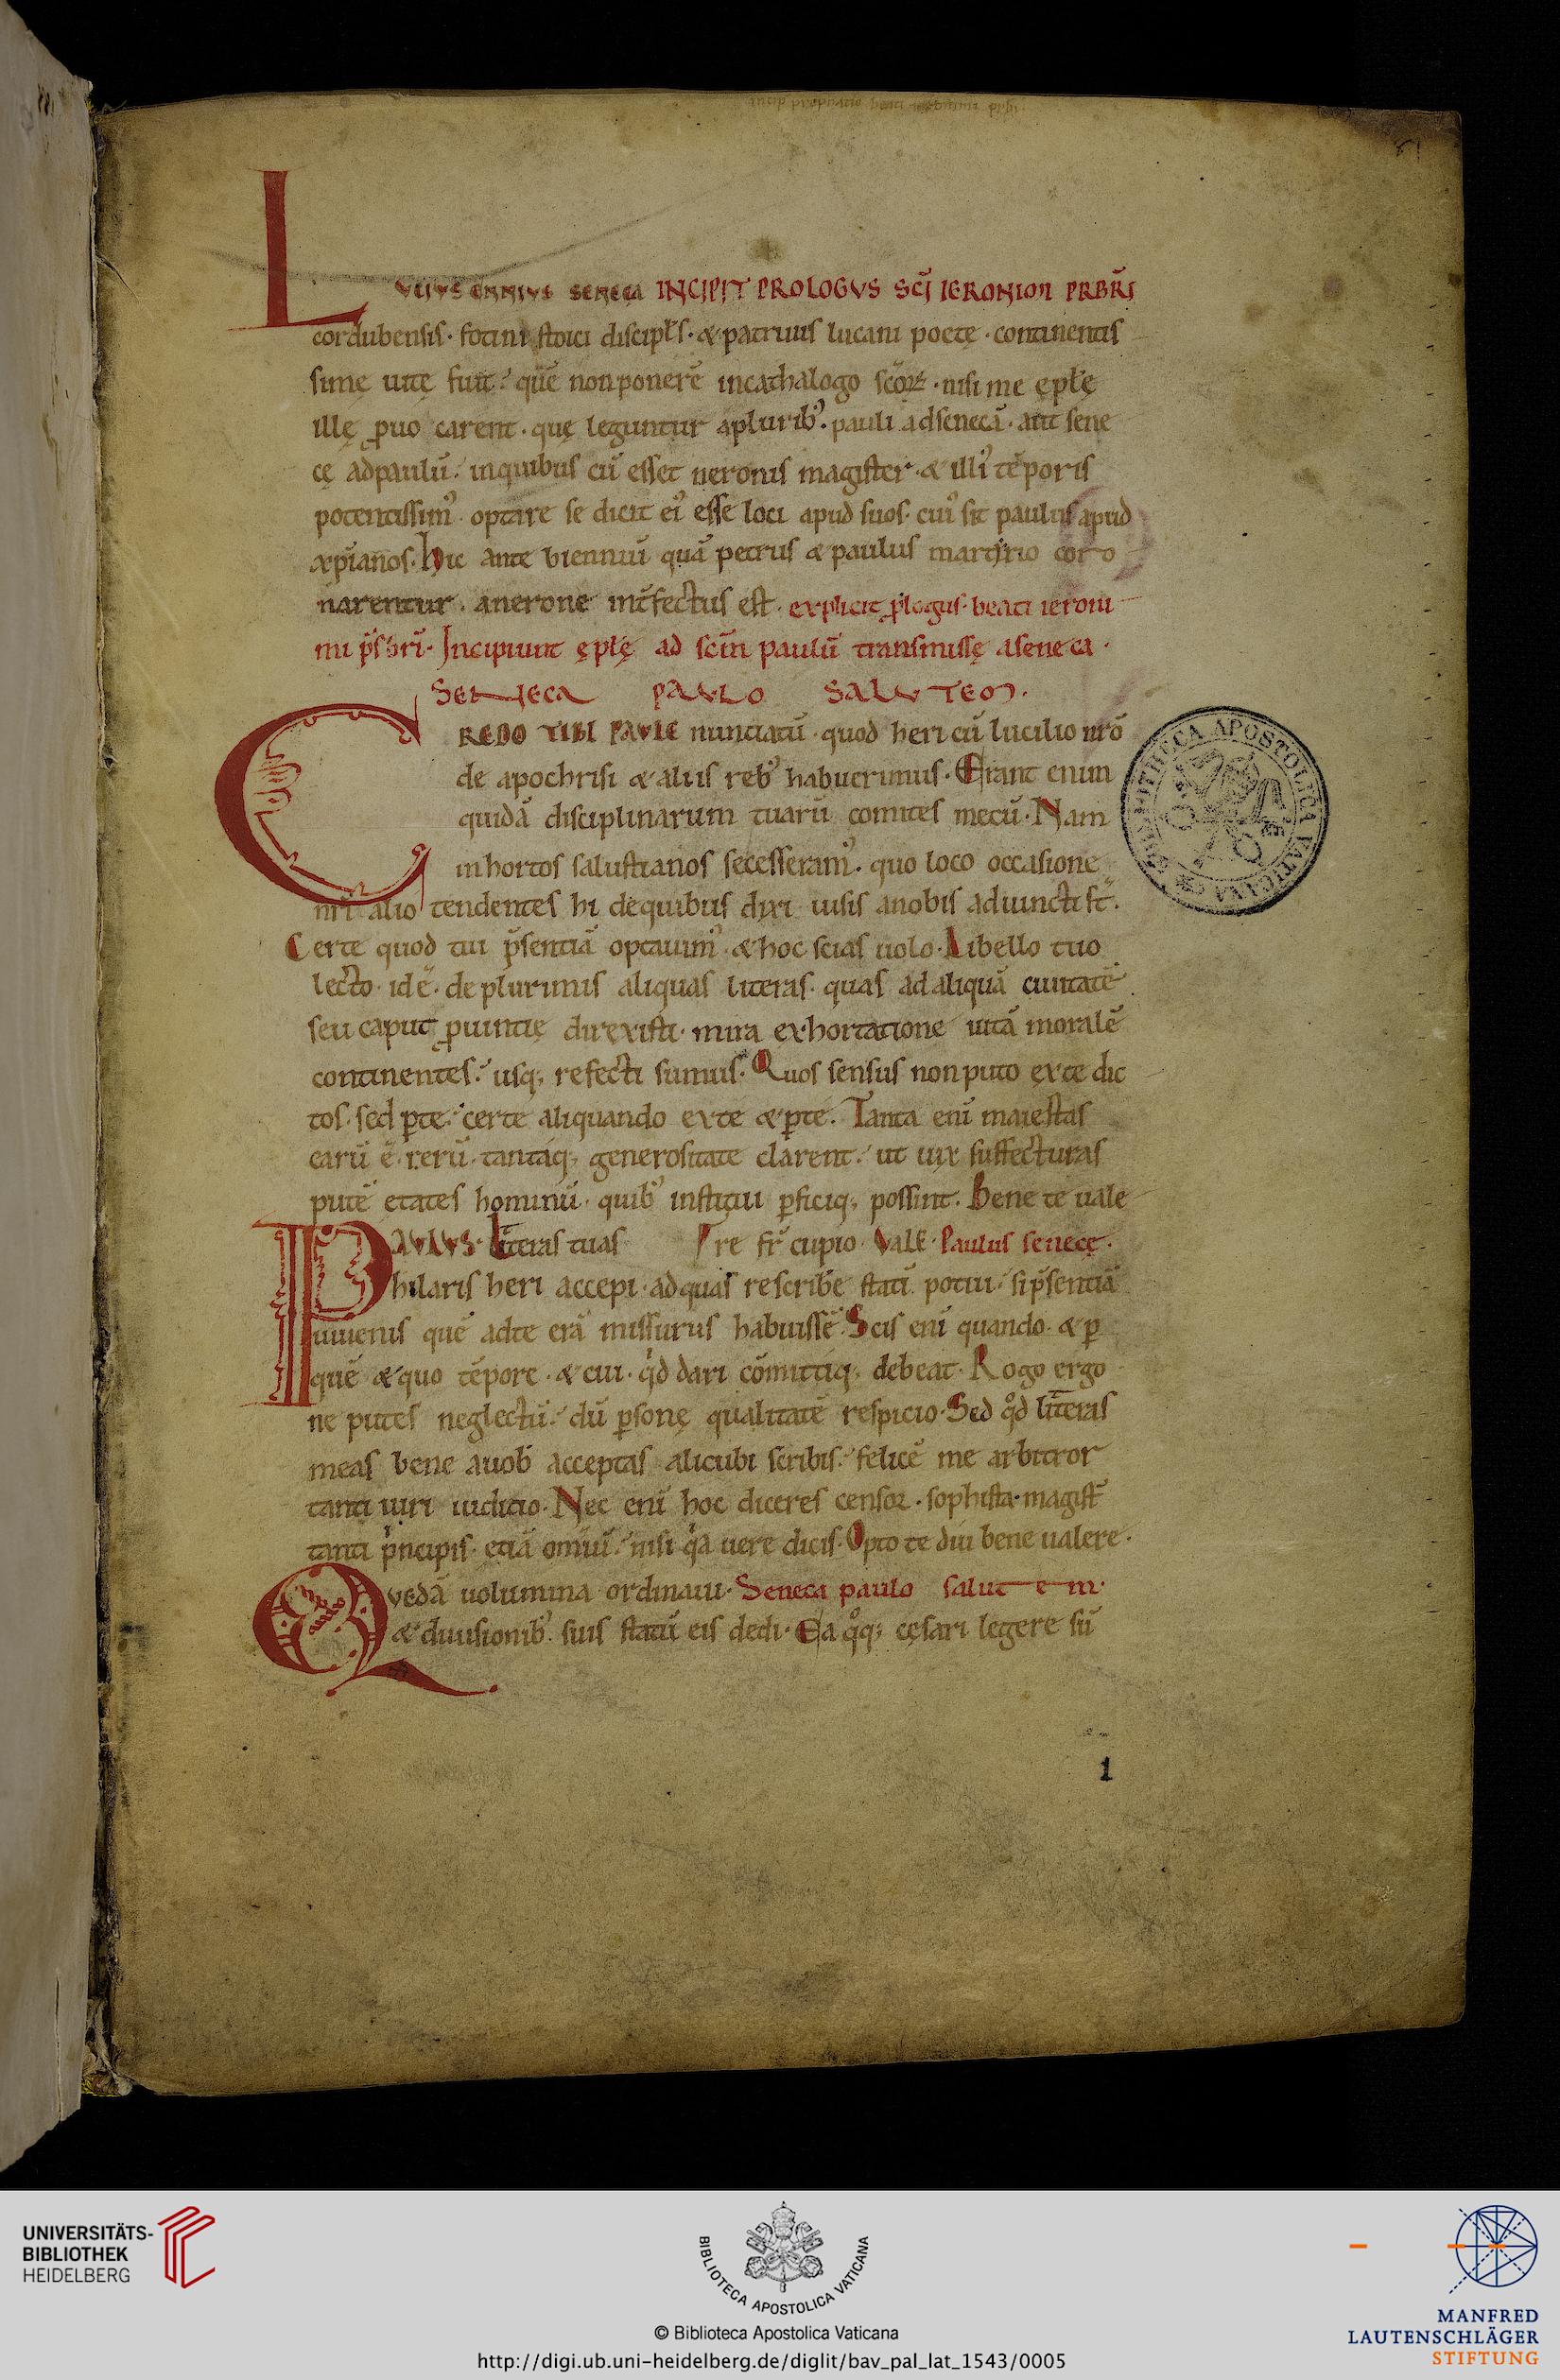 LVCIVS ENNIVS SENECA INCIPIT PROLOGVS SCĪ IERONIMI PRBRI
cordubensis · fotini stoici discipłs · & patruus lucani poetę · continentis
simę uitę fuit · quē non ponerē in cathalogo scōꝝ · nisi me ępłę
illę ꝓuo carent · quę leguntur a plurib᾿ · pauli ad senecā · aut sene
cę ad paulū · in quibus cū esset neronis magister · & illi᾿ tēporis
potentissim᾿ · optare se dicit ei᾿ esse loci apud suos · cui᾿ sit paulus apud
xp̄ianos · hic ante bienniū quā petrus & paulus martyrio coro
narentur · a nerone int̄fectus est · explicit ꝓlogus · beati ieroni
mi p̄sbrī · Incipiunt ępłę ad scīn paulū transmissę a seneca ·
SENECA PAVLO SALVTEM ·
CREDO TIBI PAVLE nuntiatū · quod heri cū lucilio nrō
de apochrisi & aliis reb᾿ habuerimus · Erant enim
quidā disciplinarum tuarū comites mecū · Nam
in hortos salustianos secesseram᾿ · quo loco occasione
nrī alio tendentes hi de quibus dixi uisis a nobis adiuncti st̄ ·
Certe quod tui p̄sentiā optauim᾿ · & hoc scias uolo · Libello tuo
lecto · id ē · de plurimis aliquas literas · quas ad aliquā ciuitatē
seu caput ꝓuintię direxisti · mira exhortatione uitā moralē
continentes · usq; refecti sumus · Quos sensus non puto ex te dic
tos · sed ꝑ te · certe aliquando ex te & ꝑ te · Tanta enī maiestas
earū ē rerū · tantaq; generositate clarent · ut uix suffecturas
putē etates hominū · quib᾿ institui ꝑficiq; possint · Bene te uale
PAVLVS · Līteras tuas re fr̄ cupio · Vale · Paulus senecę ·
hilaris heri accepi · ad quas rescribe statī potui · si p̄sentiā
iuuenis quē ad te erā missurus habuissē · Scis enī quando · & ꝑ
quē & quo tēpore · & cui · qd dari cōmittiq; debeat · Rogo ergo
ne putes neglectū · dū ꝑsonę qualitatē respicio · Sed qd līteras
meas bene a uob᾿ acceptas alicubi scribis · felicē me arbitror
tanti uiri iudicio · Nec enī hoc diceres censor · sophista · magist̄
tanti p̄ncipis · etiā omiū · nisi qa uere dicis · Opto te diu bene ualere ·
Quedā uolumina ordinaui · Seneca paulo salutem ·
& diuisionib᾿ suis statū eis dedi · Ea qq; cęsari legere sū
1
BIBLIOTHECA APOSTOLICA VATICANA
UNIVERSITÄTS-
BIBLIOTHEK
HEIDELBERG
BIBLIOTECA APOSTOLICA VATICANA
© Biblioteca Apostolica Vaticana
http://digi.ub.uni-heidelberg.de/diglit/bav_pal_lat_1543/0005
MANFRED
LAUTENSCHLÄGER
STIFTUNG